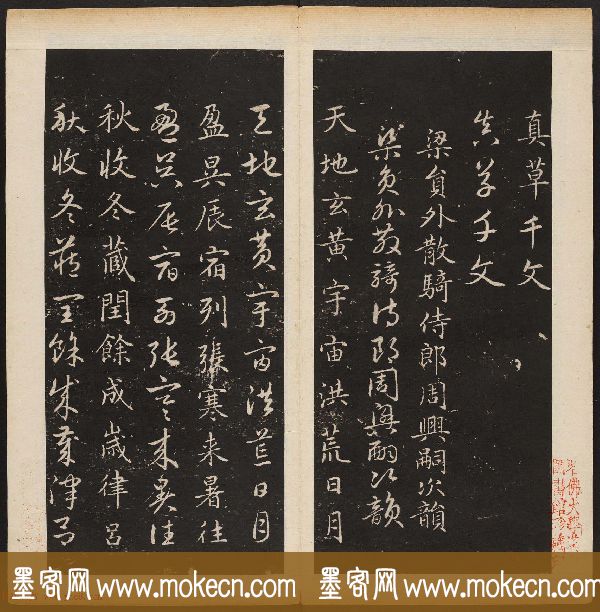 真草千文
真草千文
梁員外散騎侍郎周興嗣次韻
梁員外散騎侍郎周興嗣次韻
天地玄黃宇宙洪荒日月
天地玄黃宇宙洪荒日月
盈昃辰宿列張寒来暑往
盈昃辰宿列張寒来暑往
秋收冬藏閏餘成歲律呂
秋收冬藏閏餘成歲律呂
墨客网 www.mokecn.com
墨客网 www.mokecn.com